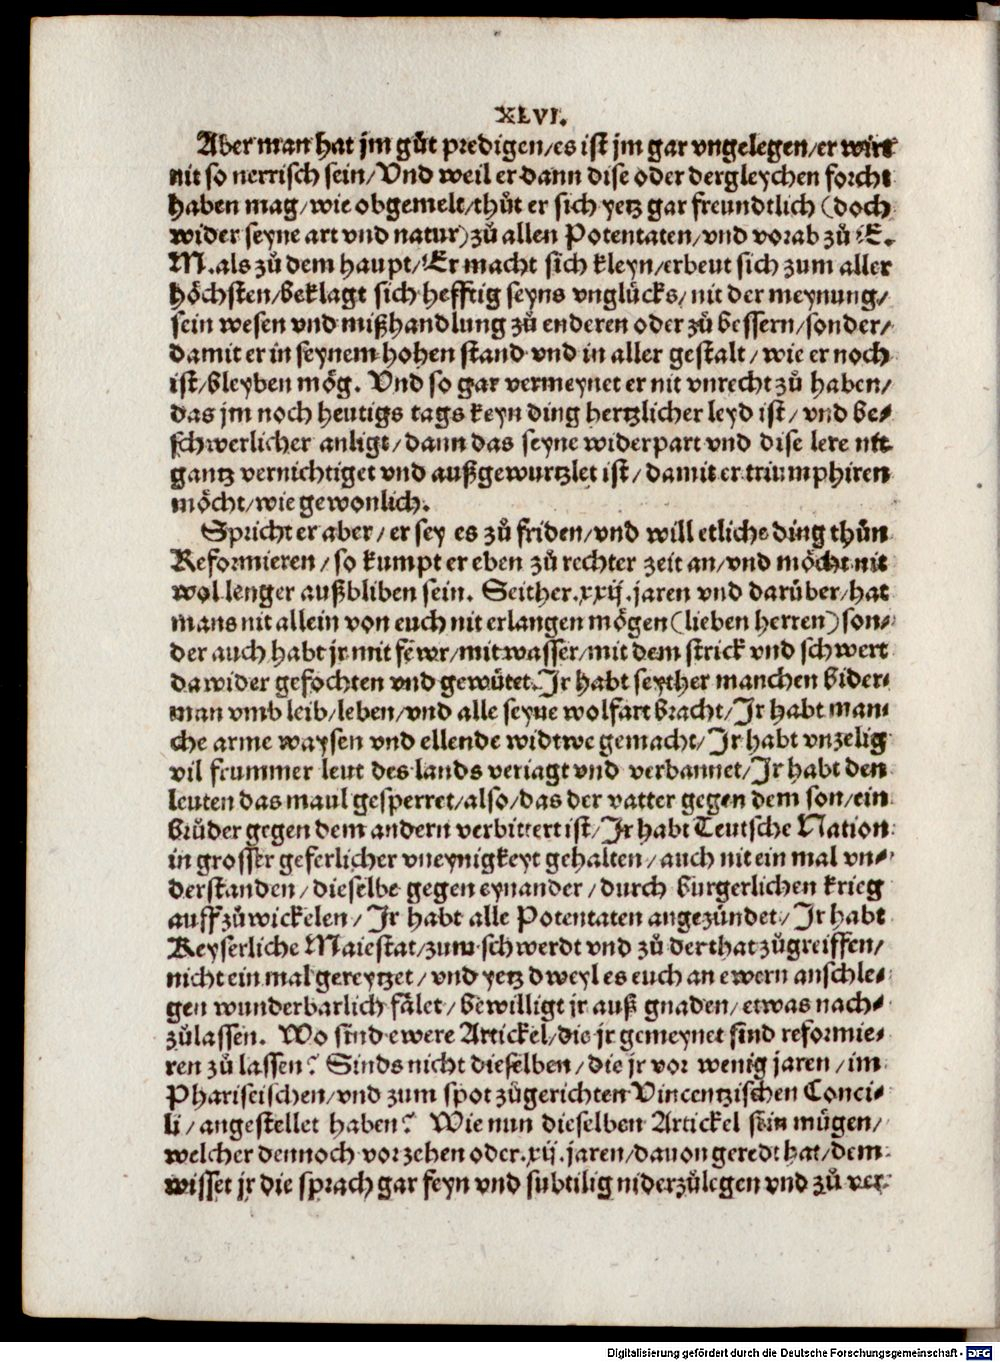 XLVI.
Aber man hat jm gůt predigen/es ist jm gar vngelegen/er wirt
nit so nerrisch sein/Vnd weil er dann dise oder dergleychen forcht
haben mag/wie obgemelt/thůt er sich yetz gar freundtlich (doch
wider seyne art vnd natur) zů allen Potentaten/vnd vorab zů E.
M.als zů dem haupt/Er macht sich kleyn/erbeut sich zum aller
höchsten/beklagt sich hefftig seyns vnglücks/nit der meynung/
sein wesen vnd mißhandlung zů enderen oder zů bessern/sonder/
damit er in seynem hohen stand vnd in aller gestalt/wie er noch
ist/bleyben mög. Vnd so gar vermeynet er nit vnrecht zů haben/
das jm noch heutigs tags keyn ding hertzlicher leyd ist/vnd be⸗
schwerlicher anligt/dann das seyne widerpart vnd dise lere nit
gantz vernichtiget vnd außgewurtzlet ist/damit er triumphiren
möcht/wie gewonlich.
Spricht er aber/er sey es zů friden/vnd will etliche ding thůn
Reformieren/so kumpt er eben zů rechter zeit an/vnd möcht nit
wol lenger außbliben sein. Seither.xxij.jaren vnd darüber/hat
mans nit allein von euch nit erlangen mögen (lieben herren) son⸗
der auch habt jr mit fewr/mit wasser/mit dem strick vnd schwert
dawider gefochten vnd gewütet.Jr habt seyther manchen bider⸗
man vmb leib/leben/vnd alle seyne wolfart bracht/Jr habt man⸗
che arme waysen vnd ellende widtwe gemacht/Jr habt vnzelig
vil frummer leut des lands veriagt vnd verbannet/Jr habt den
leuten das maul gesperret/also/das der vatter gegen dem son/ein
brůder gegen dem andern verbittert ist/Jr habt Teutsche Nation
in grosser geferlicher vneynigkeyt gehalten/auch nit ein mal vn⸗
derstanden/dieselbe gegen eynander/durch burgerlichen krieg
auffzůwickelen/Jr habt alle Potentaten angezündet/Jr habt
Keyserliche Maiestat/zum schwerdt vnd zů der that zůgreiffen/
nicht ein mal gereytzet/vnd yetz dweyl es euch an ewern anschle⸗
gen wunderbarlich fälet/bewilligt jr auß gnaden/etwas nach⸗
zůlassen. Wo sind ewere Artickel/die jr gemeynet sind reformie⸗
ren zů lassen? Sinds nicht dieselben/die jr vor wenig jaren/im
Phariseischen/vnd zum spot zůgerichten Vincentzischen Conci⸗
li/angestellet haben? Wie nun dieselben Artickel sein mügen/
welcher dennoch vor zehen oder.xij.jaren/dauon geredt hat/dem
wisset jr die sprach gar feyn vnd subtilig niderzůlegen vnd zů ver⸗
Digitalisierung gefördert durch die Deutsche Forschungsgemeinschaft - DFG